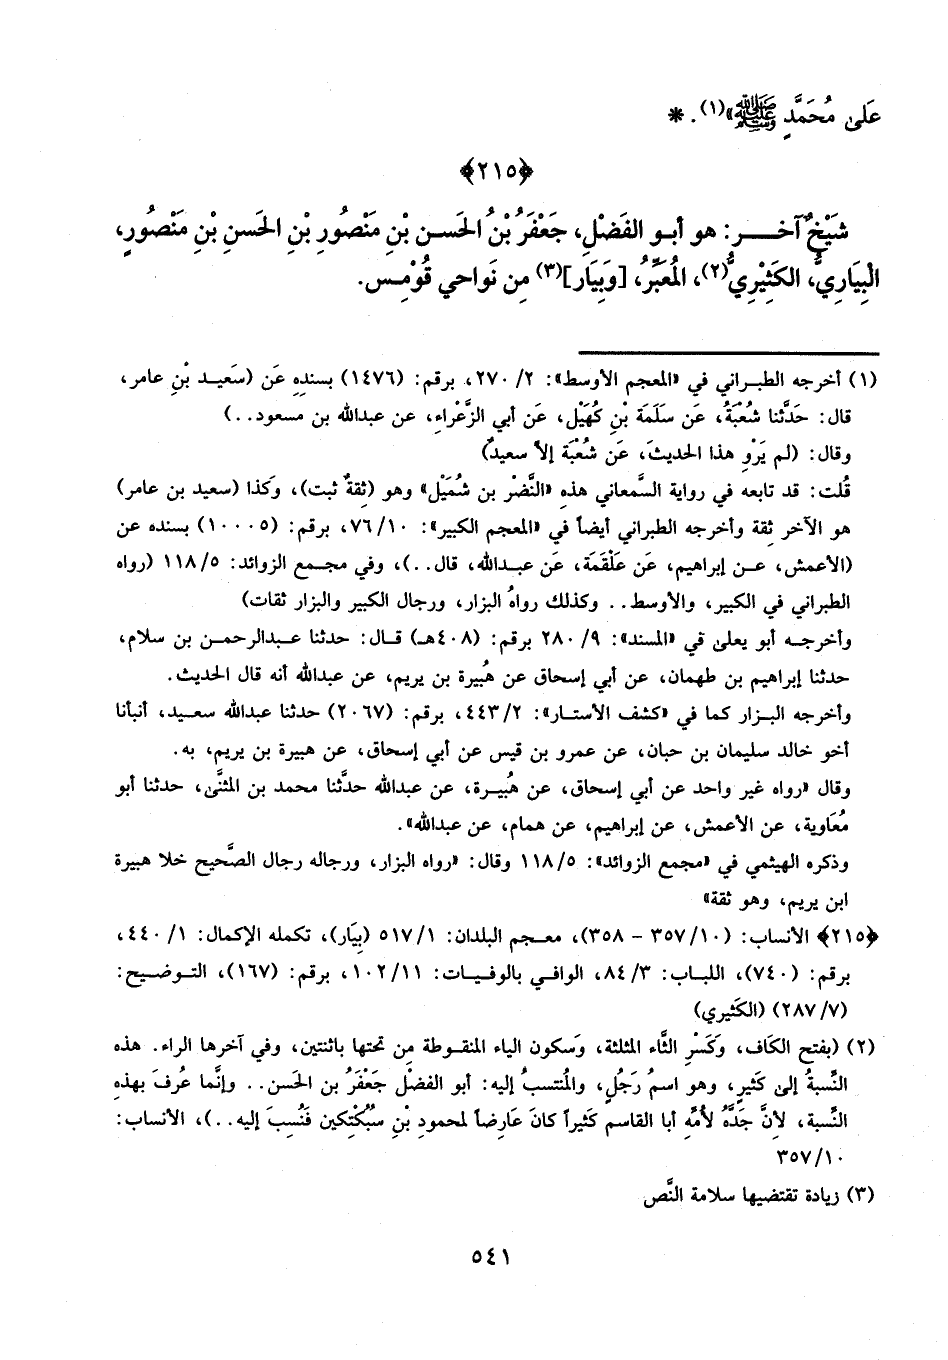 عَلىٰ مُحَمَّدٍ ﷺ»(١). *
﴿٢١٥﴾
شَيْخٌ آخـــر: هو أبـو الفَضْلِ، جَعْفَرُ بْنُ الحَسـن بْنِ مَنْصُورِ بْنِ الحَسنِ بْنِ مَنْصُورٍ،
الْبِيَاريُّ، الكَثِيْرِيُّ(٢)، المُعبِّرُ، [وَبِيَار](٣) مِن نَواحي قُوْمِس.
(١) أخرجه الطبراني في «المعجم الأوسط»: ٢/ ٢٧٠، برقم: (١٤٧٦) بسندِهِ عَن (سَعيـد بْنِ عامر،
قال: حَدَّثنا شُعْبَةُ، عَن سَلَمَة بْنِ كُهَيْل، عَن أبي الزَّعْراء، عن عبدالله بن مسعود..)
وقال: (لم يَرْوِ هذا الحديثَ، عَن شُعْبَة إلاّ سعيدٌ)
قُلت: قد تابعه في رواية السَّمعاني هذه «النَّضْر بن شُمَيْل» وهو (ثقةٌ ثبت)، وكذا (سعيد بن عامر)
هو الآخر ثِقة وأخرجه الطبراني أيضاً في «المعجم الكبير»: ١٠/ ٧٦، برقم: (١٠٠٠٥) بسنده عن
(الأعمش، عـن إبراهيم، عَن عَلْقَمَة، عَن عبـدالله، قال..)، وفي مجـمع الزوائد: ٥/ ١١٨ (رواه
الطبراني في الكبير، والأوسط.. وكذلك رواهُ البزار، ورجال الكبير والبزار ثقات)
وأخرجـه أبو يعلىٰ في «المسند»: ٩/ ٢٨٠ برقم: (٤٠٨هـ) قـال: حدثنا عبـدالرحمـن بن سلام،
حدثنا إبراهيم بن طهمان، عن أبي إسحاق عن هُبيرة بن يريم، عن عبدالله أنه قال الحديث.
وأخرجه البـزار كما في «كشف الأستـار»: ٢/ ٤٤٣، برقم: (٢٠٦٧) حدثنا عبدالله سعـيد، أنبأنا
أخو خالد سليمان بن حبان، عن عمرو بن قيس عن أبي إسحاق، عن هبيرة بن يريم، به.
وقال «رواه غير واحد عن أبي إسحاق، عن هُبيـرة، عن عبدالله حدَّثنا محمد بن المثنَّى، حدثنا أبو
مُعَاوية، عن الأعمش، عن إبراهيم، عن همام، عن عبدالله».
وذكره الهيثمي في «مجمع الزوائد»: ٥/ ١١٨ وقال: «رواه البزار، ورجاله رجال الصَّحيح خلا هبيرة
ابن يريم، وهو ثقة»
﴿٢١٥﴾ الأنساب: (١٠/ ٣٥٧ - ٣٥٨)، معـجم البلدان: ١/ ٥١٧ (بِيَار)، تكمله الإكمال: ١/ ٤٤٠،
برقم: (٧٤٠)، اللباب: ٣/ ٨٤، الوافـي بالوفيـات: ١١/ ١٠٢، برقم: (١٦٧)، التـوضـيح:
(٧/ ٢٨٧) (الكَثيري)
(٢) (بفتح الكَاف، وَكَسْرِ الثَّاء المثلثة، وَسكون الياء المنقـوطة مِن تحتها باثنتين، وفي آخرها الراء. هذه
النِّسبةُ إلى كَثيرٍ، وهو اسمُ رَجُلٍ، والمُنتسبُ إليه: أبو الفضْل جَعْفَرُ بن الحَسن.. وإنَّما عُرفَ بهذه
النِّسبة، لأنَّ جَدَّهُ لأُمِّهِ أبا القاسم كَثيراً كانَ عَارضاً لمحمود بْنِ سبُكْتِكين فَنُسِبَ إليه..)، الأنساب:
١٠/ ٣٥٧
(٣) زيادة تقتضيها سلامة النَّص
٥٤١